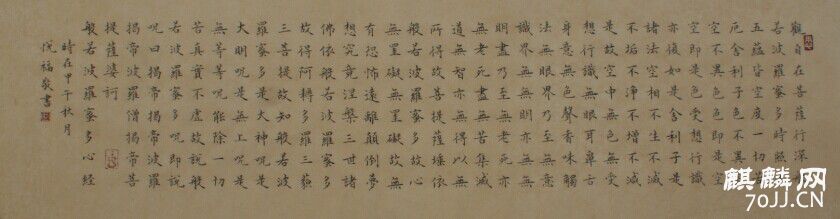 觀自在菩薩行深
若波羅蜜多時照
五蘊皆空度一切
厄舍利子色不異
空不異色色即是空
空即是色受想行識
亦復如是舍利子是
諸法空相不生不滅
不垢不淨不增不減
是故空中無色無受
想行識無眼耳鼻舌
身意無色聲香味觸
法無眼界乃至無意
識界無無明亦無無
明盡乃至無老死亦
無老死盡無苦集滅
道無智亦無得以無
所得故菩提薩埵依
般若波羅蜜多故心
無罣礙無罣礙故無
有恐怖遠離顛倒夢
想究竟涅槃三世諸
佛依般若波羅蜜多
故得阿耨多羅三藐
三菩提故知般若波
羅蜜多是大神呪是
大明呪是無上呪是
無等等呪能除一切
苦真實不虛故說般
若波羅蜜多呪即說
呪曰揭帝揭帝波羅
揭帝波羅僧揭帝菩
提薩婆訶
般若波羅蜜多心經
時在甲午秋月
悅福敬書
麒麟网
70JJ.CN